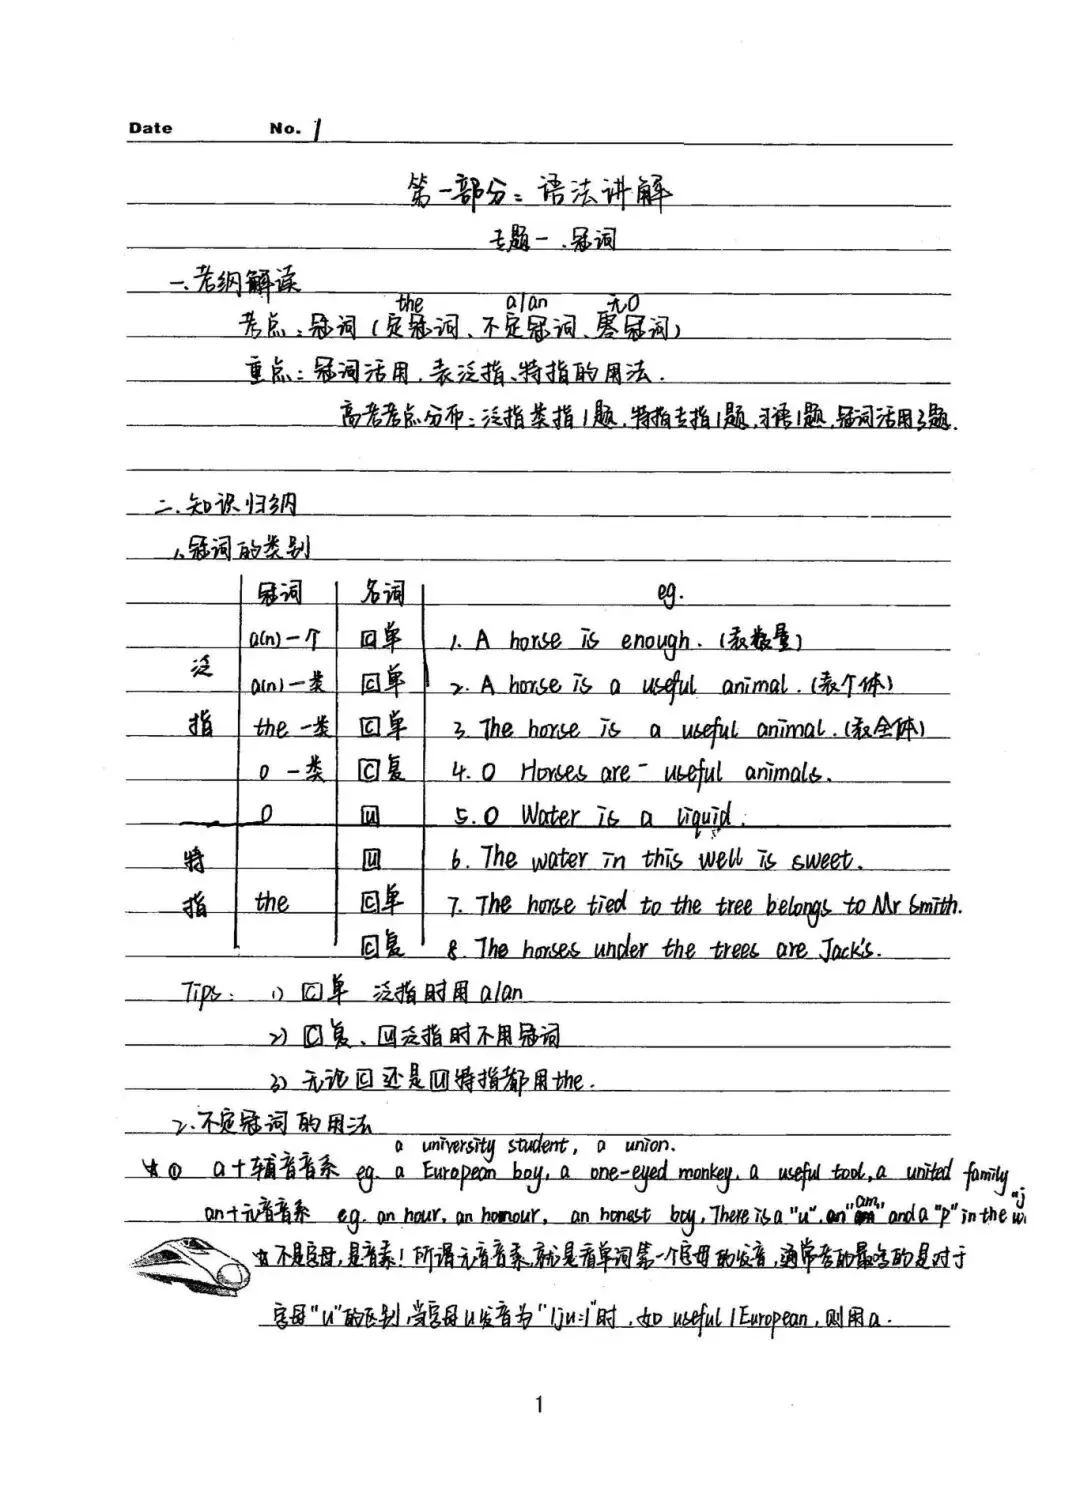 Date No. 1
第一部分：语法讲解
专题一、冠词
一、考纲解读
the a/an 无0
考点：冠词（定冠词、不定冠词、零冠词）
重点：冠词活用，表泛指、特指的用法．
高考考点分布：泛指类指1题，特指专指1题，习语1题，冠词活用3题．
二、知识归纳
1、冠词的类别
冠词 名词 eg.
a(n)一个 C单 1. A horse is enough.（表数量）
泛 a(n)一类 C单 2. A horse is a useful animal.（表个体）
指 the 一类 C单 3. The horse is a useful animal.（表全体）
0 一类 C复 4. 0 Horses are useful animals.
0 U 5. 0 Water is a liquid.
特 U 6. The water in this well is sweet.
指 the C单 7. The horse tied to the tree belongs to Mr Smith.
C复 8. The horses under the trees are Jack's.
Tips: 1) C单 泛指时用a/an
2) C复、U泛指时不用冠词
3) 无论C还是U特指都用the.
2、不定冠词的用法
a university student, a union.
☆① a+辅音音系 eg. a European boy, a one-eyed monkey, a useful tool, a united family
an+元音音系 eg. an hour, an honour, an honest boy, There is a "u", an "m" and a "p" in the
☆不是字母，是音素！所谓元音音系，就是看单词第一个字母的发音，通常考的最多的是对于
字母"u"的区别，当字母u发音为"/ju:/"时，如 useful / European，则用a.
1